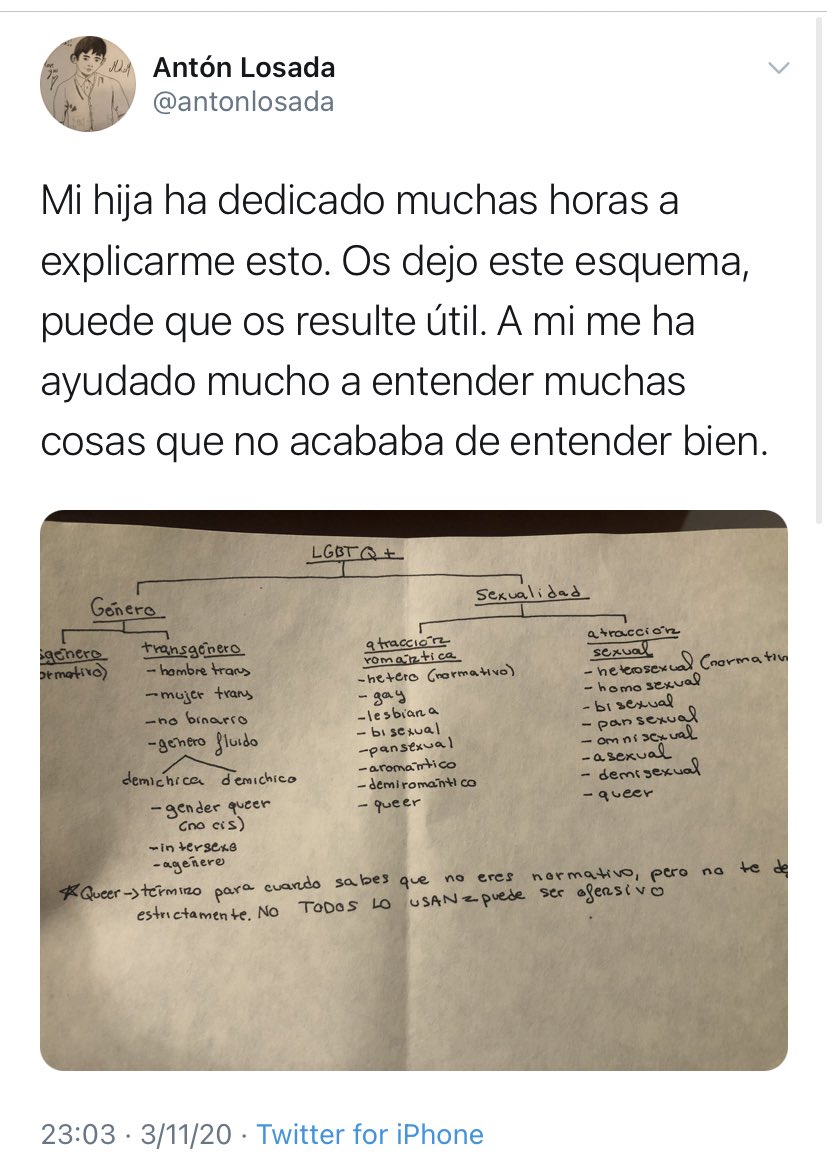 Antón Losada
@antonlosada
Mi hija ha dedicado muchas horas a
explicarme esto. Os dejo este esquema,
puede que os resulte útil. A mi me ha
ayudado mucho a entender muchas
cosas que no acababa de entender bien.
LGBTQ+
Género
Sexualidad
sgénero
ormativo)
transgénero
- hombre trans
- mujer trans
- no binario
- género fluido
demichica demichico
- gender queer
(no cis)
- intersexo
- agénero
atracción
romántica
- hetero (normativo)
- gay
- lesbiana
- bisexual
- pansexual
- aromántico
- demiromántico
- queer
atracción
sexual
- heterosexual (normativ
- homosexual
- bisexual
- pansexual
- omnisexual
- asexual
- demisexual
- queer
*Queer → término para cuando sabes que no eres normativo, pero no te de
estrictamente. NO TODOS LO USAN puede ser ofensivo
23:03 · 3/11/20 · Twitter for iPhone